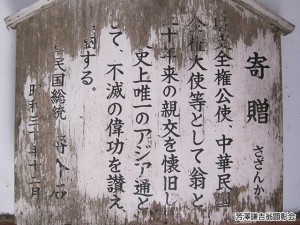 寄贈
さざんか
全権公使、中華民国
全権大使等として翁と
二十年来の親交を懐旧し
史上唯一のアジア通と
して、不滅の偉功を讃え
する。
民国総統
昭和三十年十二月
芳澤謙吉翁顕彰会